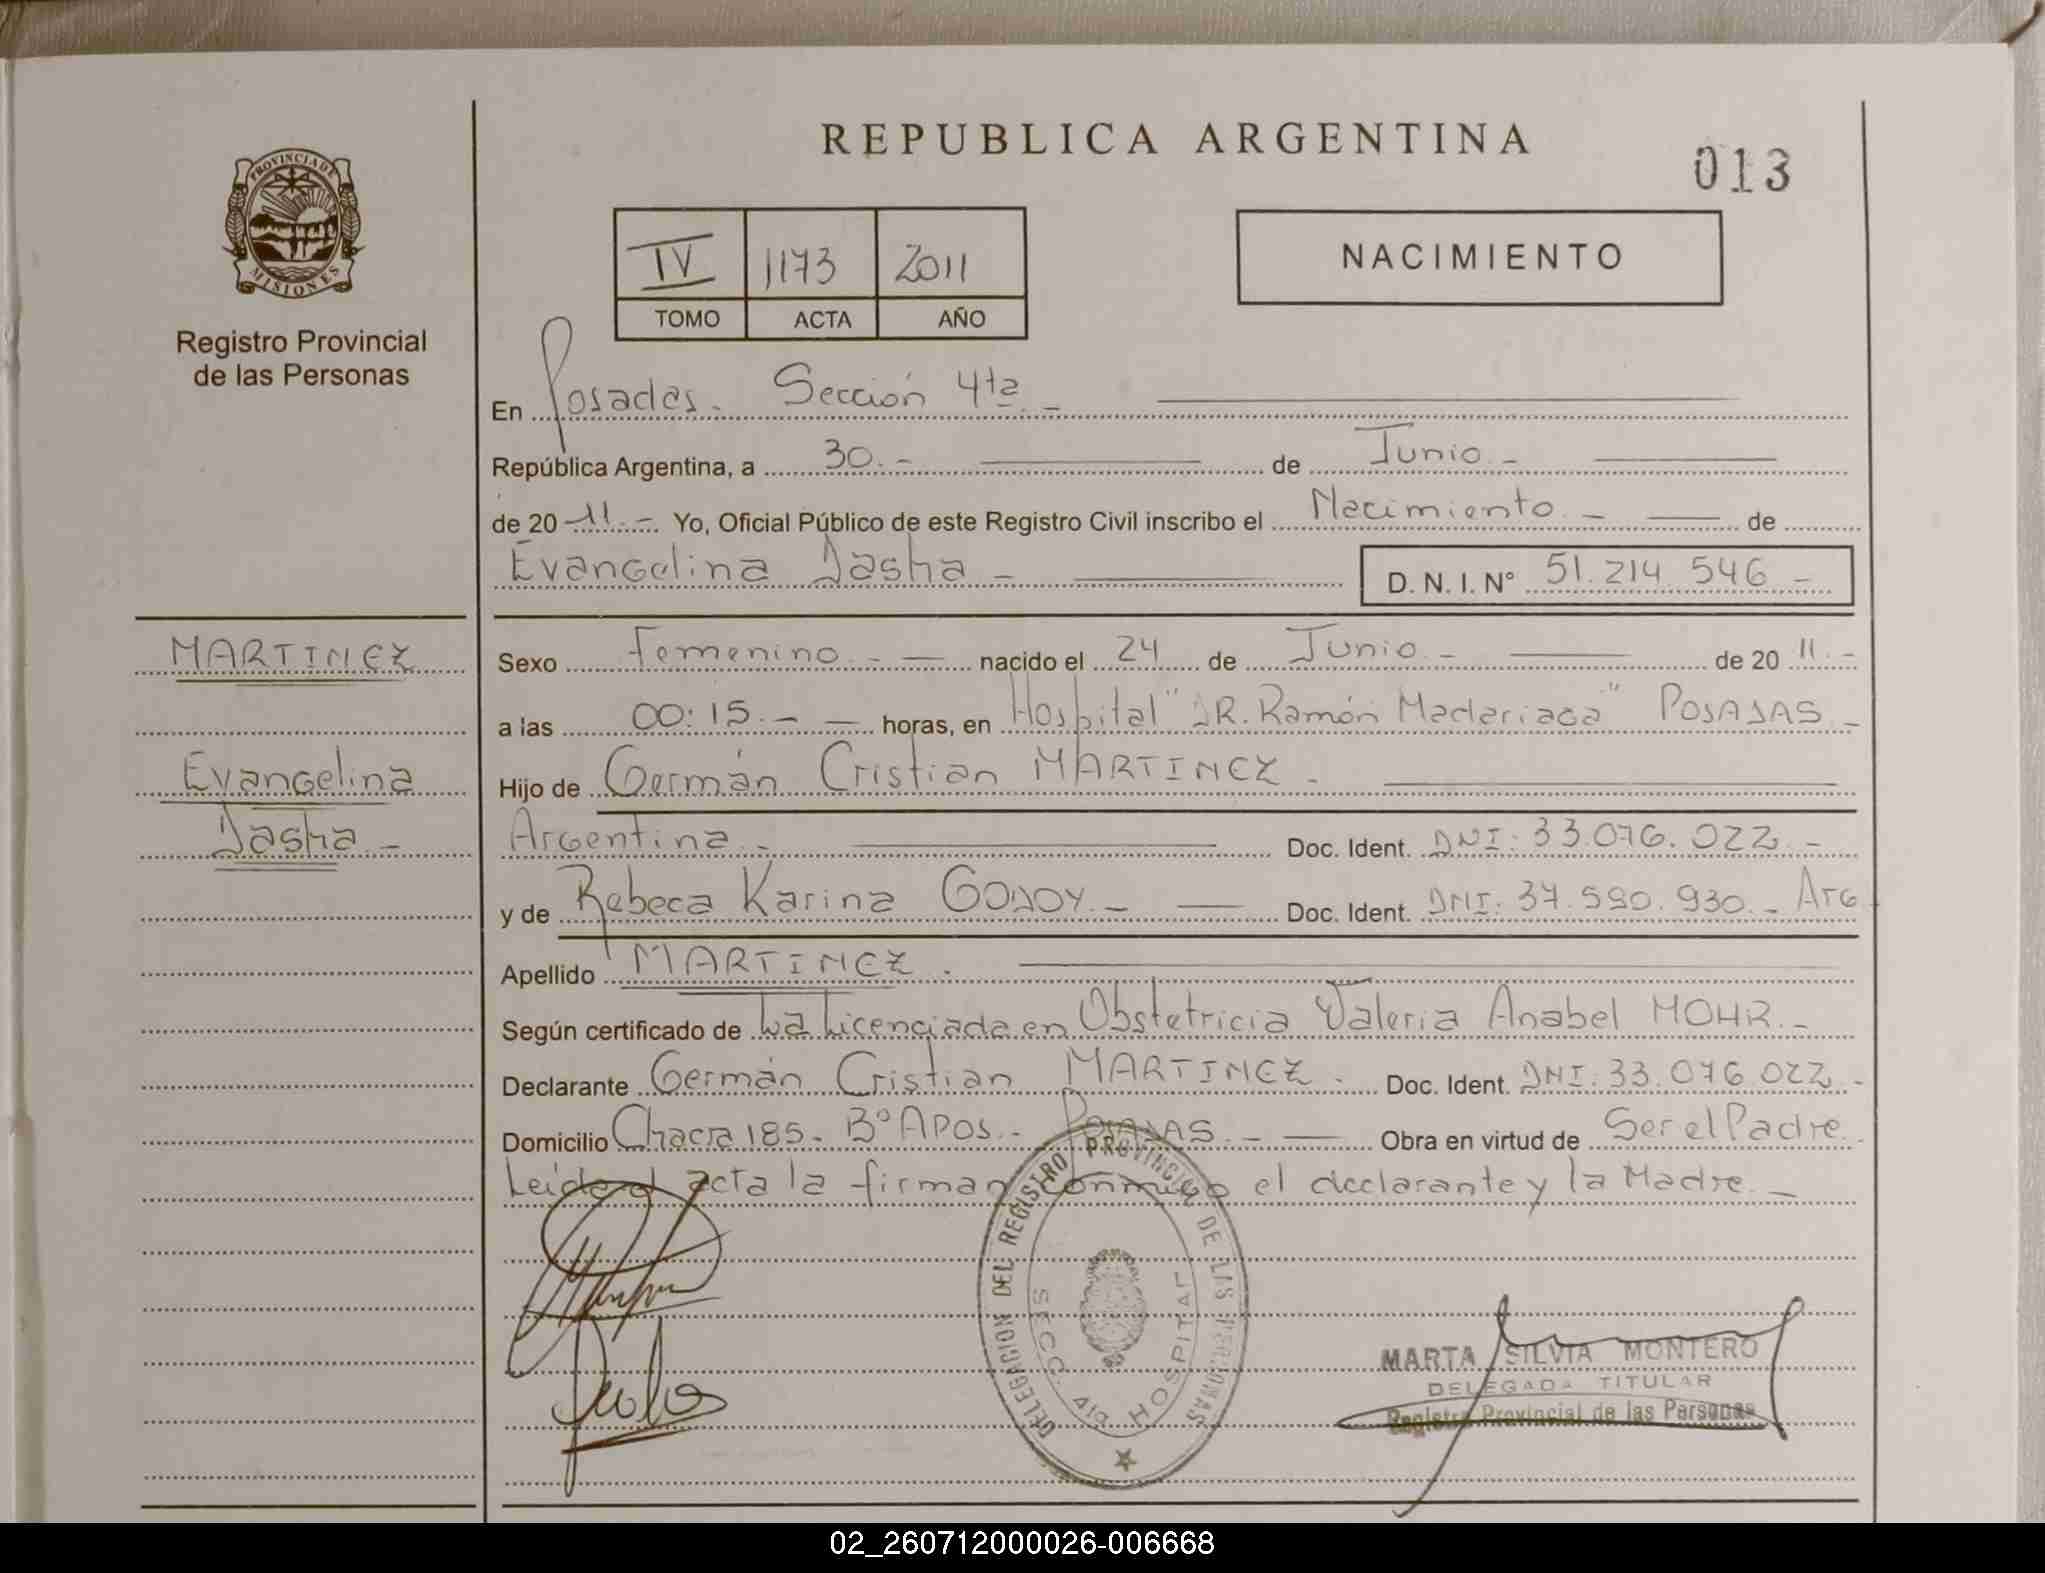 REPUBLICA ARGENTINA
013
PROVINCIA DE
MISIONES
Registro Provincial
de las Personas
IV 1173 2011
TOMO ACTA AÑO
NACIMIENTO
En Posadas. Sección 4ta. -
República Argentina, a 30. - de Junio. -
de 20 11. - Yo, Oficial Público de este Registro Civil inscribo el Nacimiento. - de
Evangelina Dasha - D. N. I. N° 51.214.546 -
MARTINEZ
Evangelina
Dasha. -
Sexo Femenino. - nacido el 24 de Junio. - de 20 11. -
a las 00:15. - horas, en Hospital "DR. Ramón Madariaga" POSADAS. -
Hijo de Germán Cristian MARTINEZ.
Argentina. - Doc. Ident. DNI: 33.076.022. -
y de Rebeca Karina GODOY. - Doc. Ident. DNI: 37.590.930. - Arg
Apellido MARTINEZ.
Según certificado de La Licenciada en Obstetricia Valeria Anabel MOHR. -
Declarante Germán Cristian MARTINEZ. Doc. Ident. DNI: 33.076.022. -
Domicilio Chacra 185. B° A POS. - POSADAS. - Obra en virtud de Ser el Padre.
Leída el acta la firman conmigo el declarante y la Madre. -
DELEGACION DEL REGISTRO PROVINCIAL DE LAS PERSONAS
SECC. 4ta HOSPITAL
MARTA SILVIA MONTERO
DELEGADA TITULAR
Registro Provincial de las Personas
02_260712000026-006668